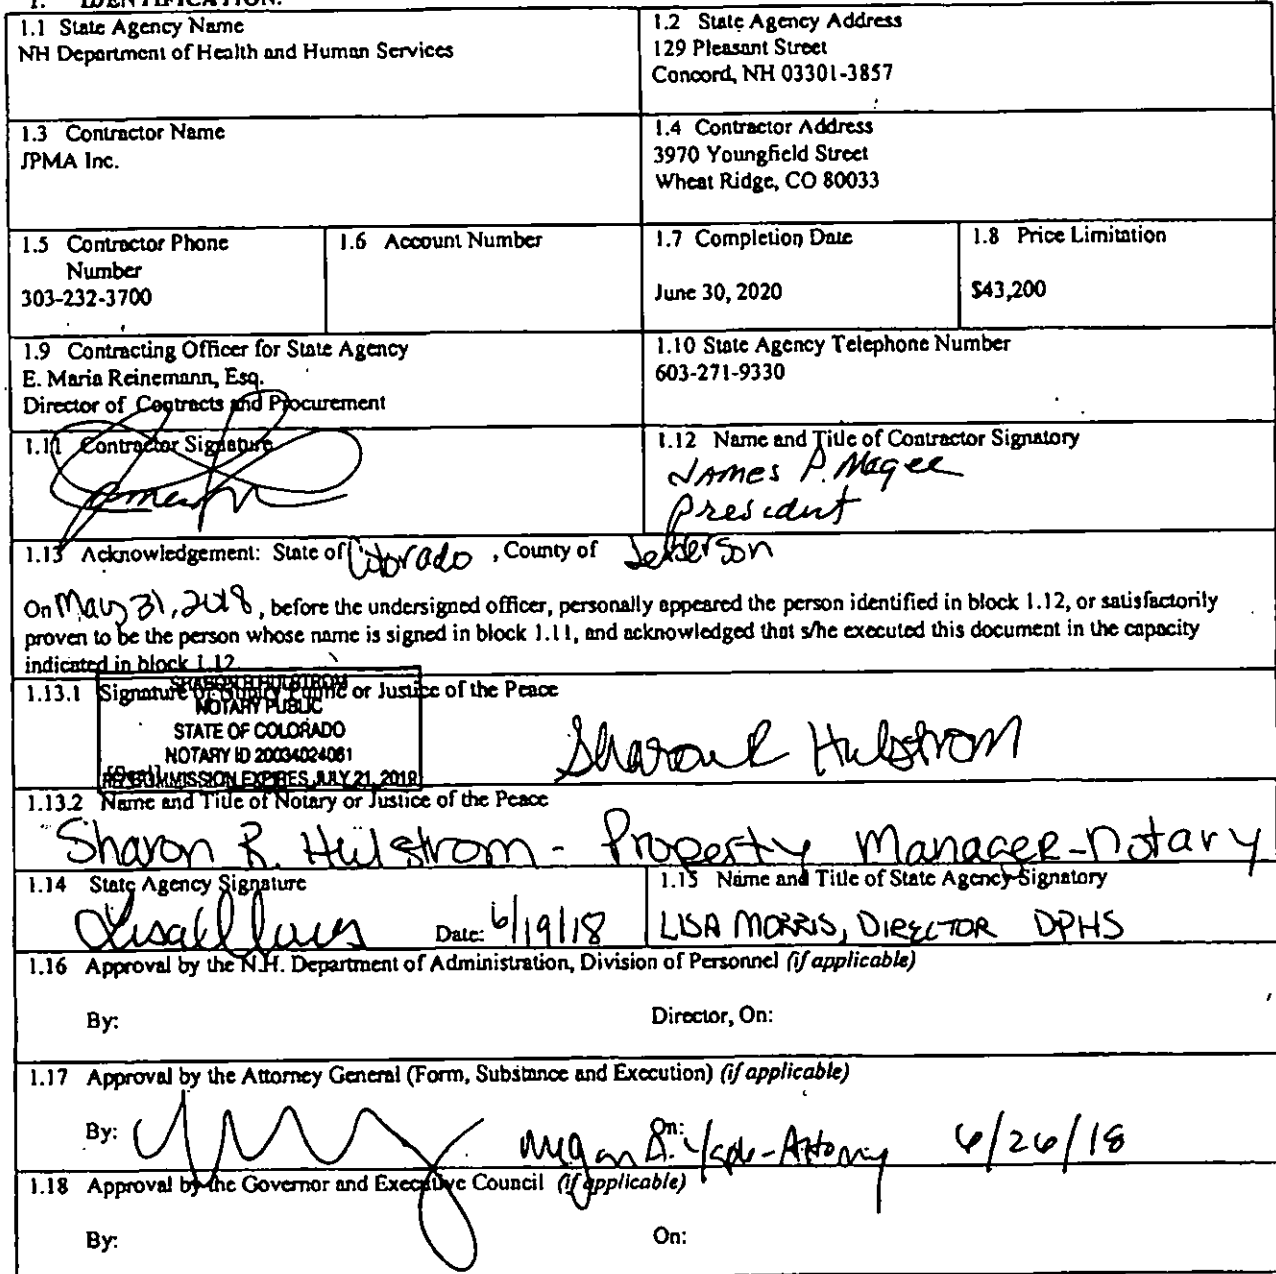 1. IDENTIFICATION.
1.1 State Agency Name
NH Department of Health and Human Services
1.2 State Agency Address
129 Pleasant Street
Concord, NH 03301-3857
1.3 Contractor Name
JPMA Inc.
1.4 Contractor Address
3970 Youngfield Street
Wheat Ridge, CO 80033
1.5 Contractor Phone
Number
303-232-3700
1.6 Account Number
1.7 Completion Date
June 30, 2020
1.8 Price Limitation
$43,200
1.9 Contracting Officer for State Agency
E. Maria Reinemann, Esq.
Director of Contracts and Procurement
1.10 State Agency Telephone Number
603-271-9330
1.11 Contractor Signature
1.12 Name and Title of Contractor Signatory
James P. Magee
President
1.13 Acknowledgement: State of Colorado , County of Jefferson
On May 31, 2018, before the undersigned officer, personally appeared the person identified in block 1.12, or satisfactorily
proven to be the person whose name is signed in block 1.11, and acknowledged that s/he executed this document in the capacity
indicated in block 1.12.
1.13.1 Signature of Notary Public or Justice of the Peace
SHARON R HULSTROM
NOTARY PUBLIC
STATE OF COLORADO
NOTARY ID 20034024061
[Seal]
MY COMMISSION EXPIRES JULY 21, 2019
Sharon R Hulstrom
1.13.2 Name and Title of Notary or Justice of the Peace
Sharon R. Hulstrom - Property Manager-Notary
1.14 State Agency Signature
Date: 6/19/18
1.15 Name and Title of State Agency Signatory
LISA MORRIS, DIRECTOR DPHS
1.16 Approval by the N.H. Department of Administration, Division of Personnel (if applicable)
By:
Director, On:
1.17 Approval by the Attorney General (Form, Substance and Execution) (if applicable)
By:
On:
Megan A. Yaple-Attorney 6/26/18
1.18 Approval by the Governor and Executive Council (if applicable)
By:
On: